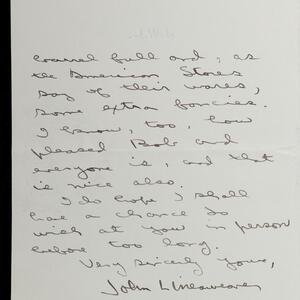 barrel full and, as
the American Stores
say of their wares,
some extra fancies.
I know, too, how
pleased Bob and
everyone is, and that
is nice also.
I do hope I shall
have a chance to
wish at you in person
before too long.
Very sincerely yours,
John Lineaweaver